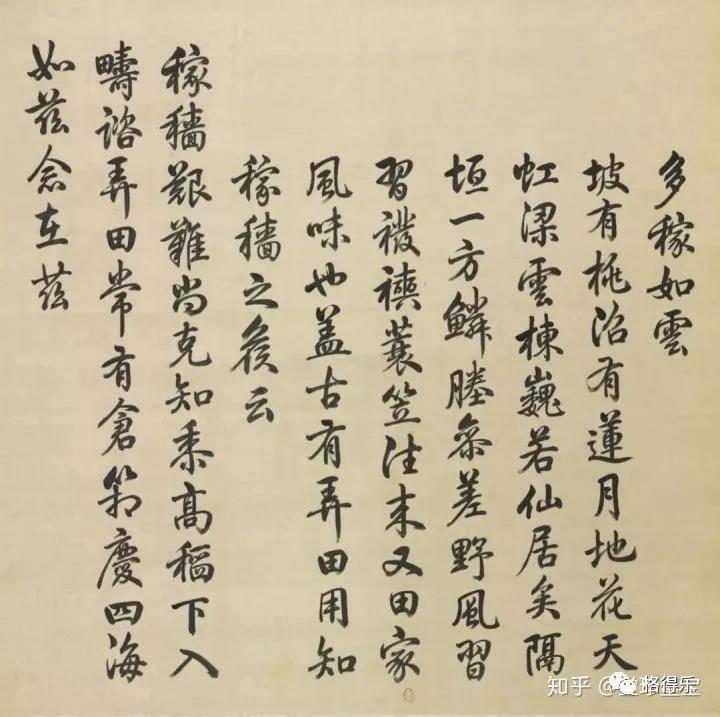 多稼如雲
坡有桃沼有蓮月地花天
虹梁雲棟巍若仙居矣隔
垣一方鱗塍參差野風習
習襏襫蓑笠往來又田家
風味也盖古有弄田用知
稼穡之候云
稼穡艱難尚克知黍高稻下入
疇諮弄田常有倉箱慶四海
如茲念在茲
知乎
珞得乐